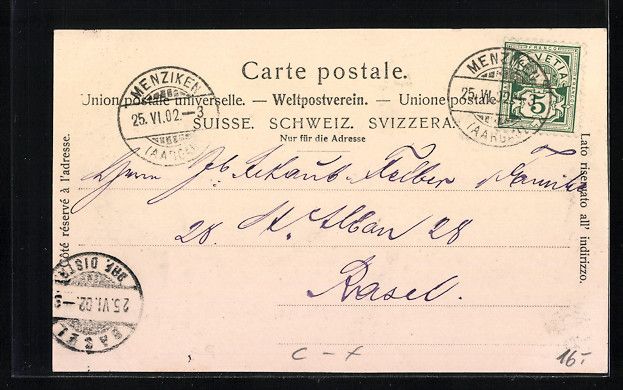 Carte postale.
Union postale universelle. — Weltpostverein. — Unione postale
SUISSE. SCHWEIZ. SVIZZERA.
Nur für die Adresse
Côté réservé à l'adresse.
Lato riservato all' indirizzo.
MENZIKEN
25.VI.02.–3
(AARGAU)
MENZIKEN
25.VI.02.–3
(AARGAU)
FRANCO
HELVETIA
5
Herrn Felber Familie
28 St. Alban 28
Basel.
BASEL
25.VI.02.
BRF. DISTR.
c – f
16.-